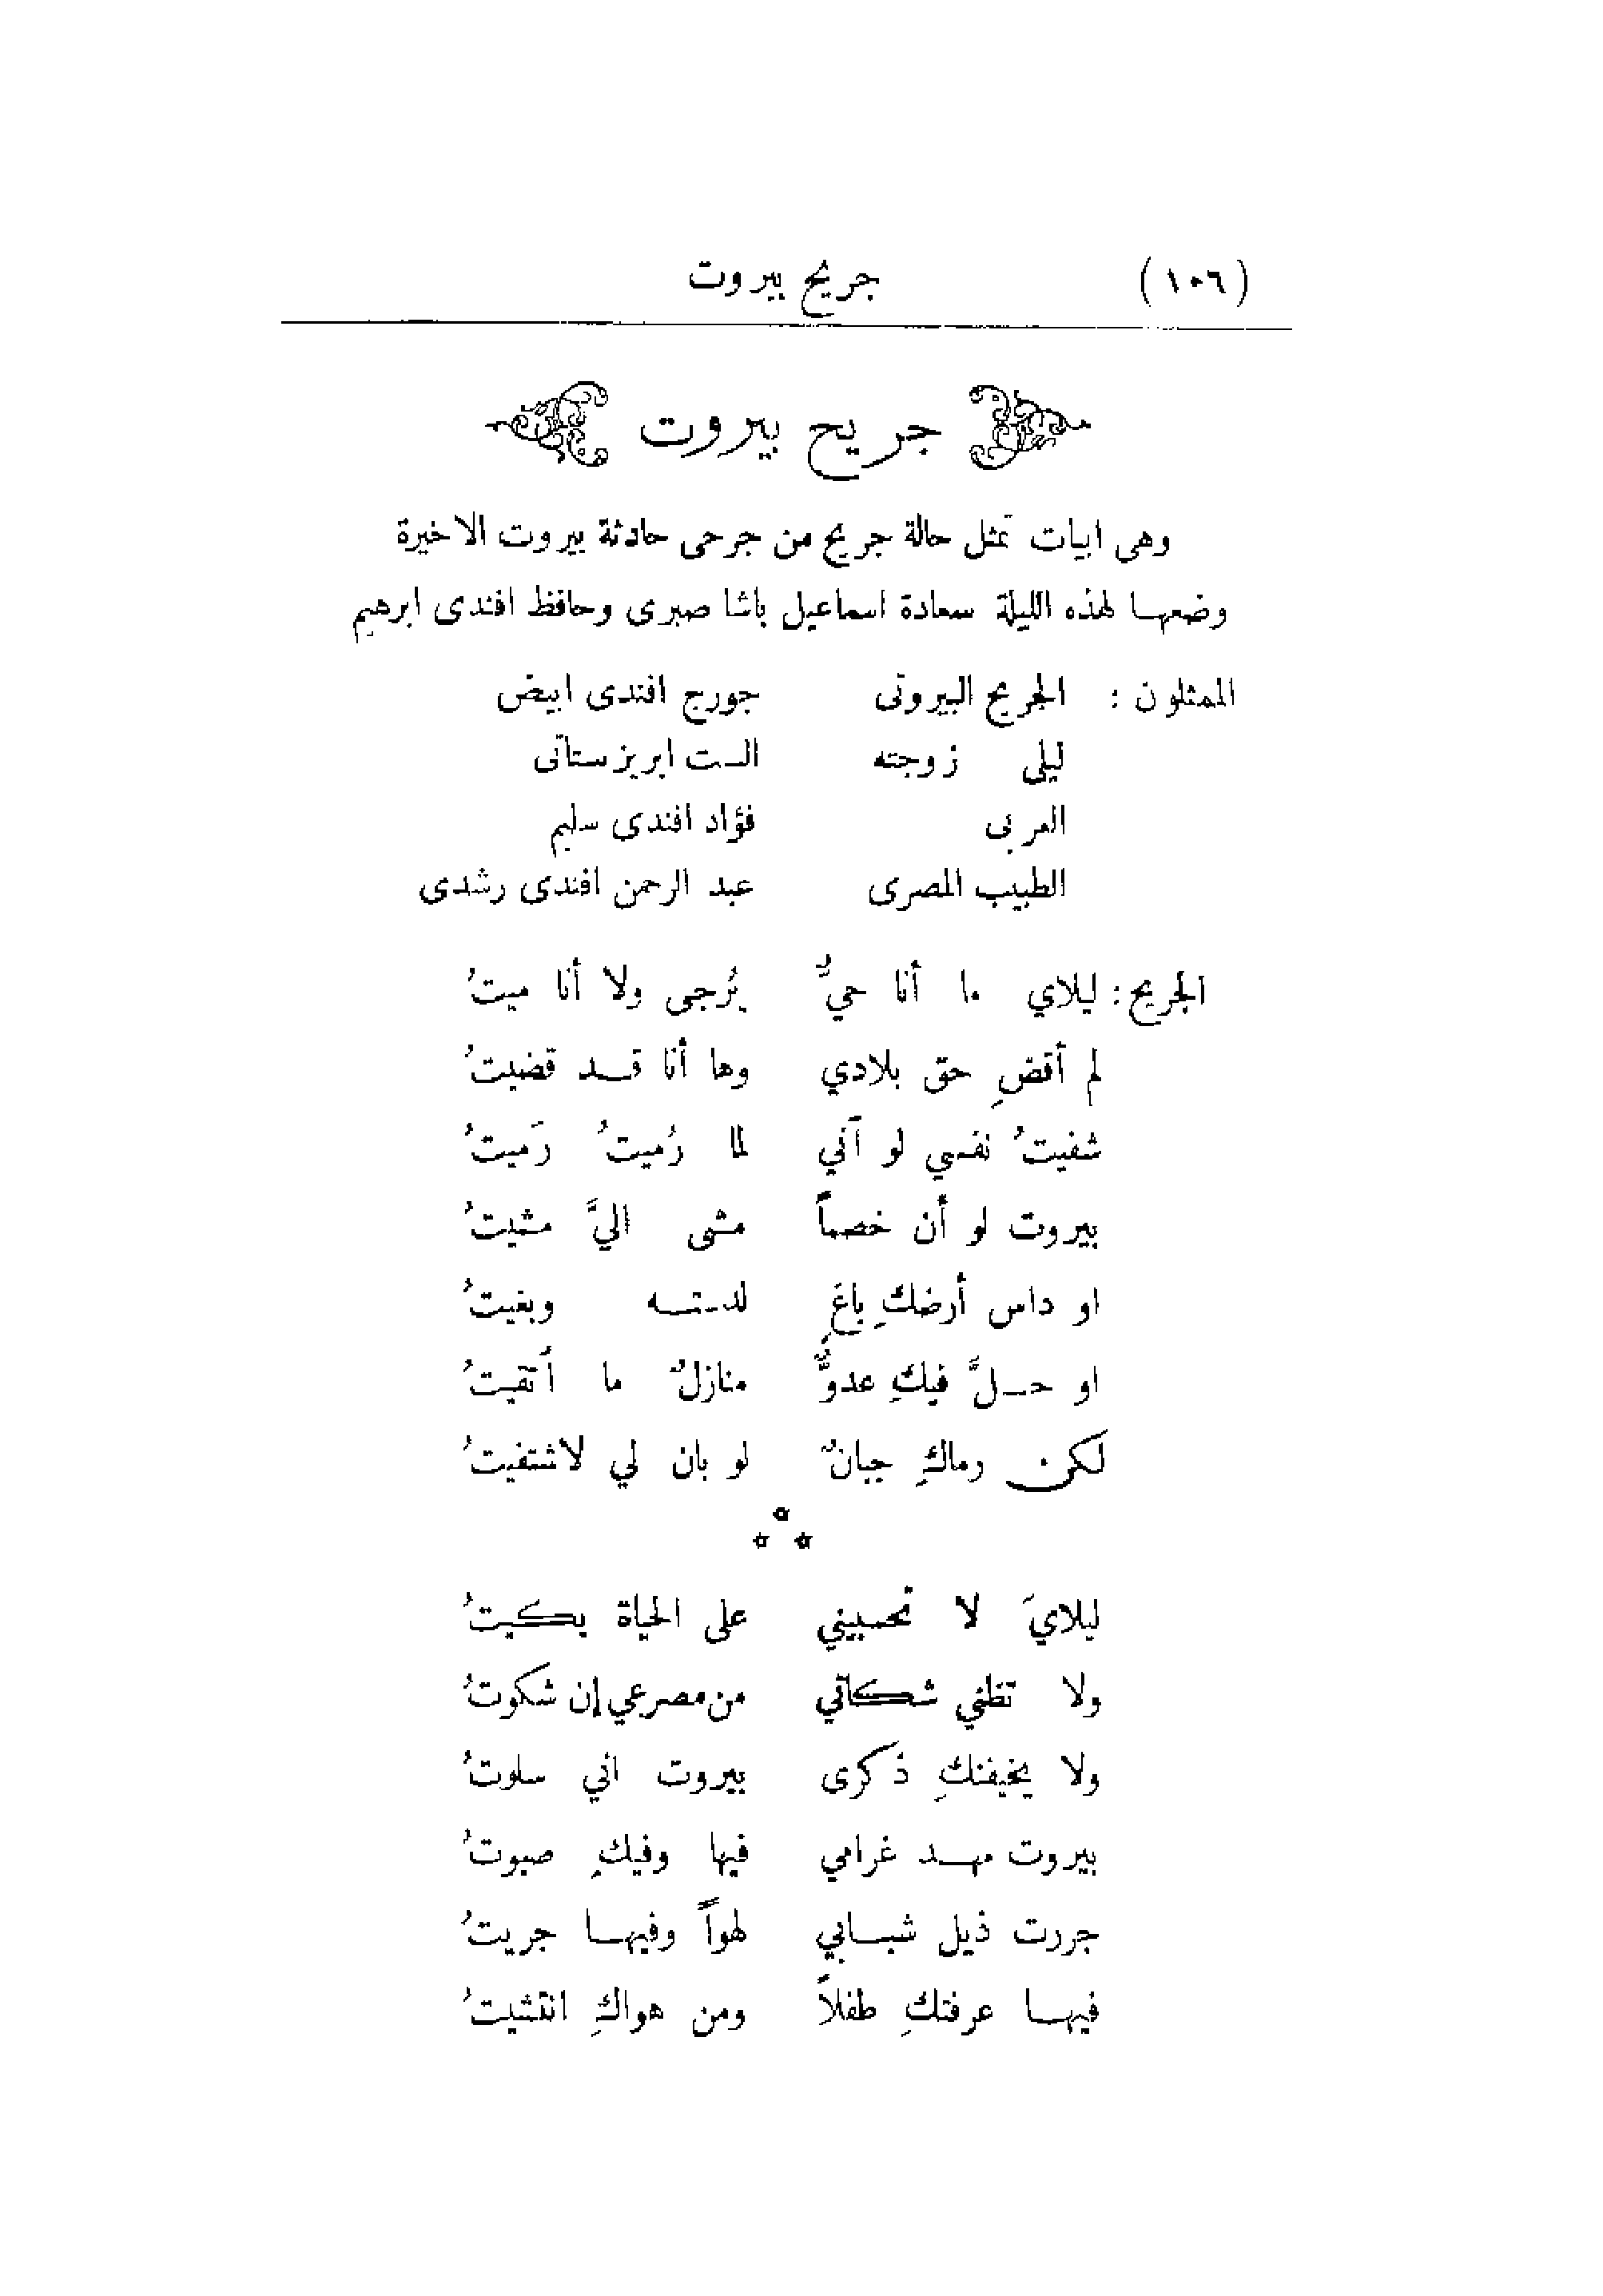 (١٠٦) جريح بيروت
جريح بيروت
وهى ابيات تمثل حالة جريح من جرحى حادثة بيروت الاخيرة
وضعها لهذه الليلة سعادة اسماعيل باشا صبرى وحافظ افندى ابرهيم
الممثلون : الجريح البيروتى جورج افندى ابيض
ليلى زوجته الست ابريز ستاتى
العربى فؤاد افندى سليم
الطبيب المصرى عبد الرحمن افندى رشدى
الجريح : ليلاي ما أنا حيٌّ يُرجى ولا أنا ميتُ
لم أقضِ حق بلادي وها أنا قد قضيتُ
شفيتُ نفسي لو أني لما رُميتُ رَميتُ
بيروت لو أن خصماً مشى اليَّ مشيتُ
او داس أرضكِ باغٍ لدسته وبغيتُ
او حلَّ فيكِ عدوٌّ منازلٌ ما أتقيتُ
لكن رماكِ جبانٌ لو بان لي لاشتفيتُ
ليلايَ لا تحسبيني على الحياة بكيتُ
ولا تظني شكاتي من مصرعي إن شكوتُ
ولا يخيفنكِ ذكرى بيروت اني سلوتُ
بيروت مهد غرامي فيها وفيكِ صبوتُ
جررت ذيل شبابي لهواً وفيها جريتُ
فيها عرفتكِ طفلاً ومن هواكِ انتشيتُ